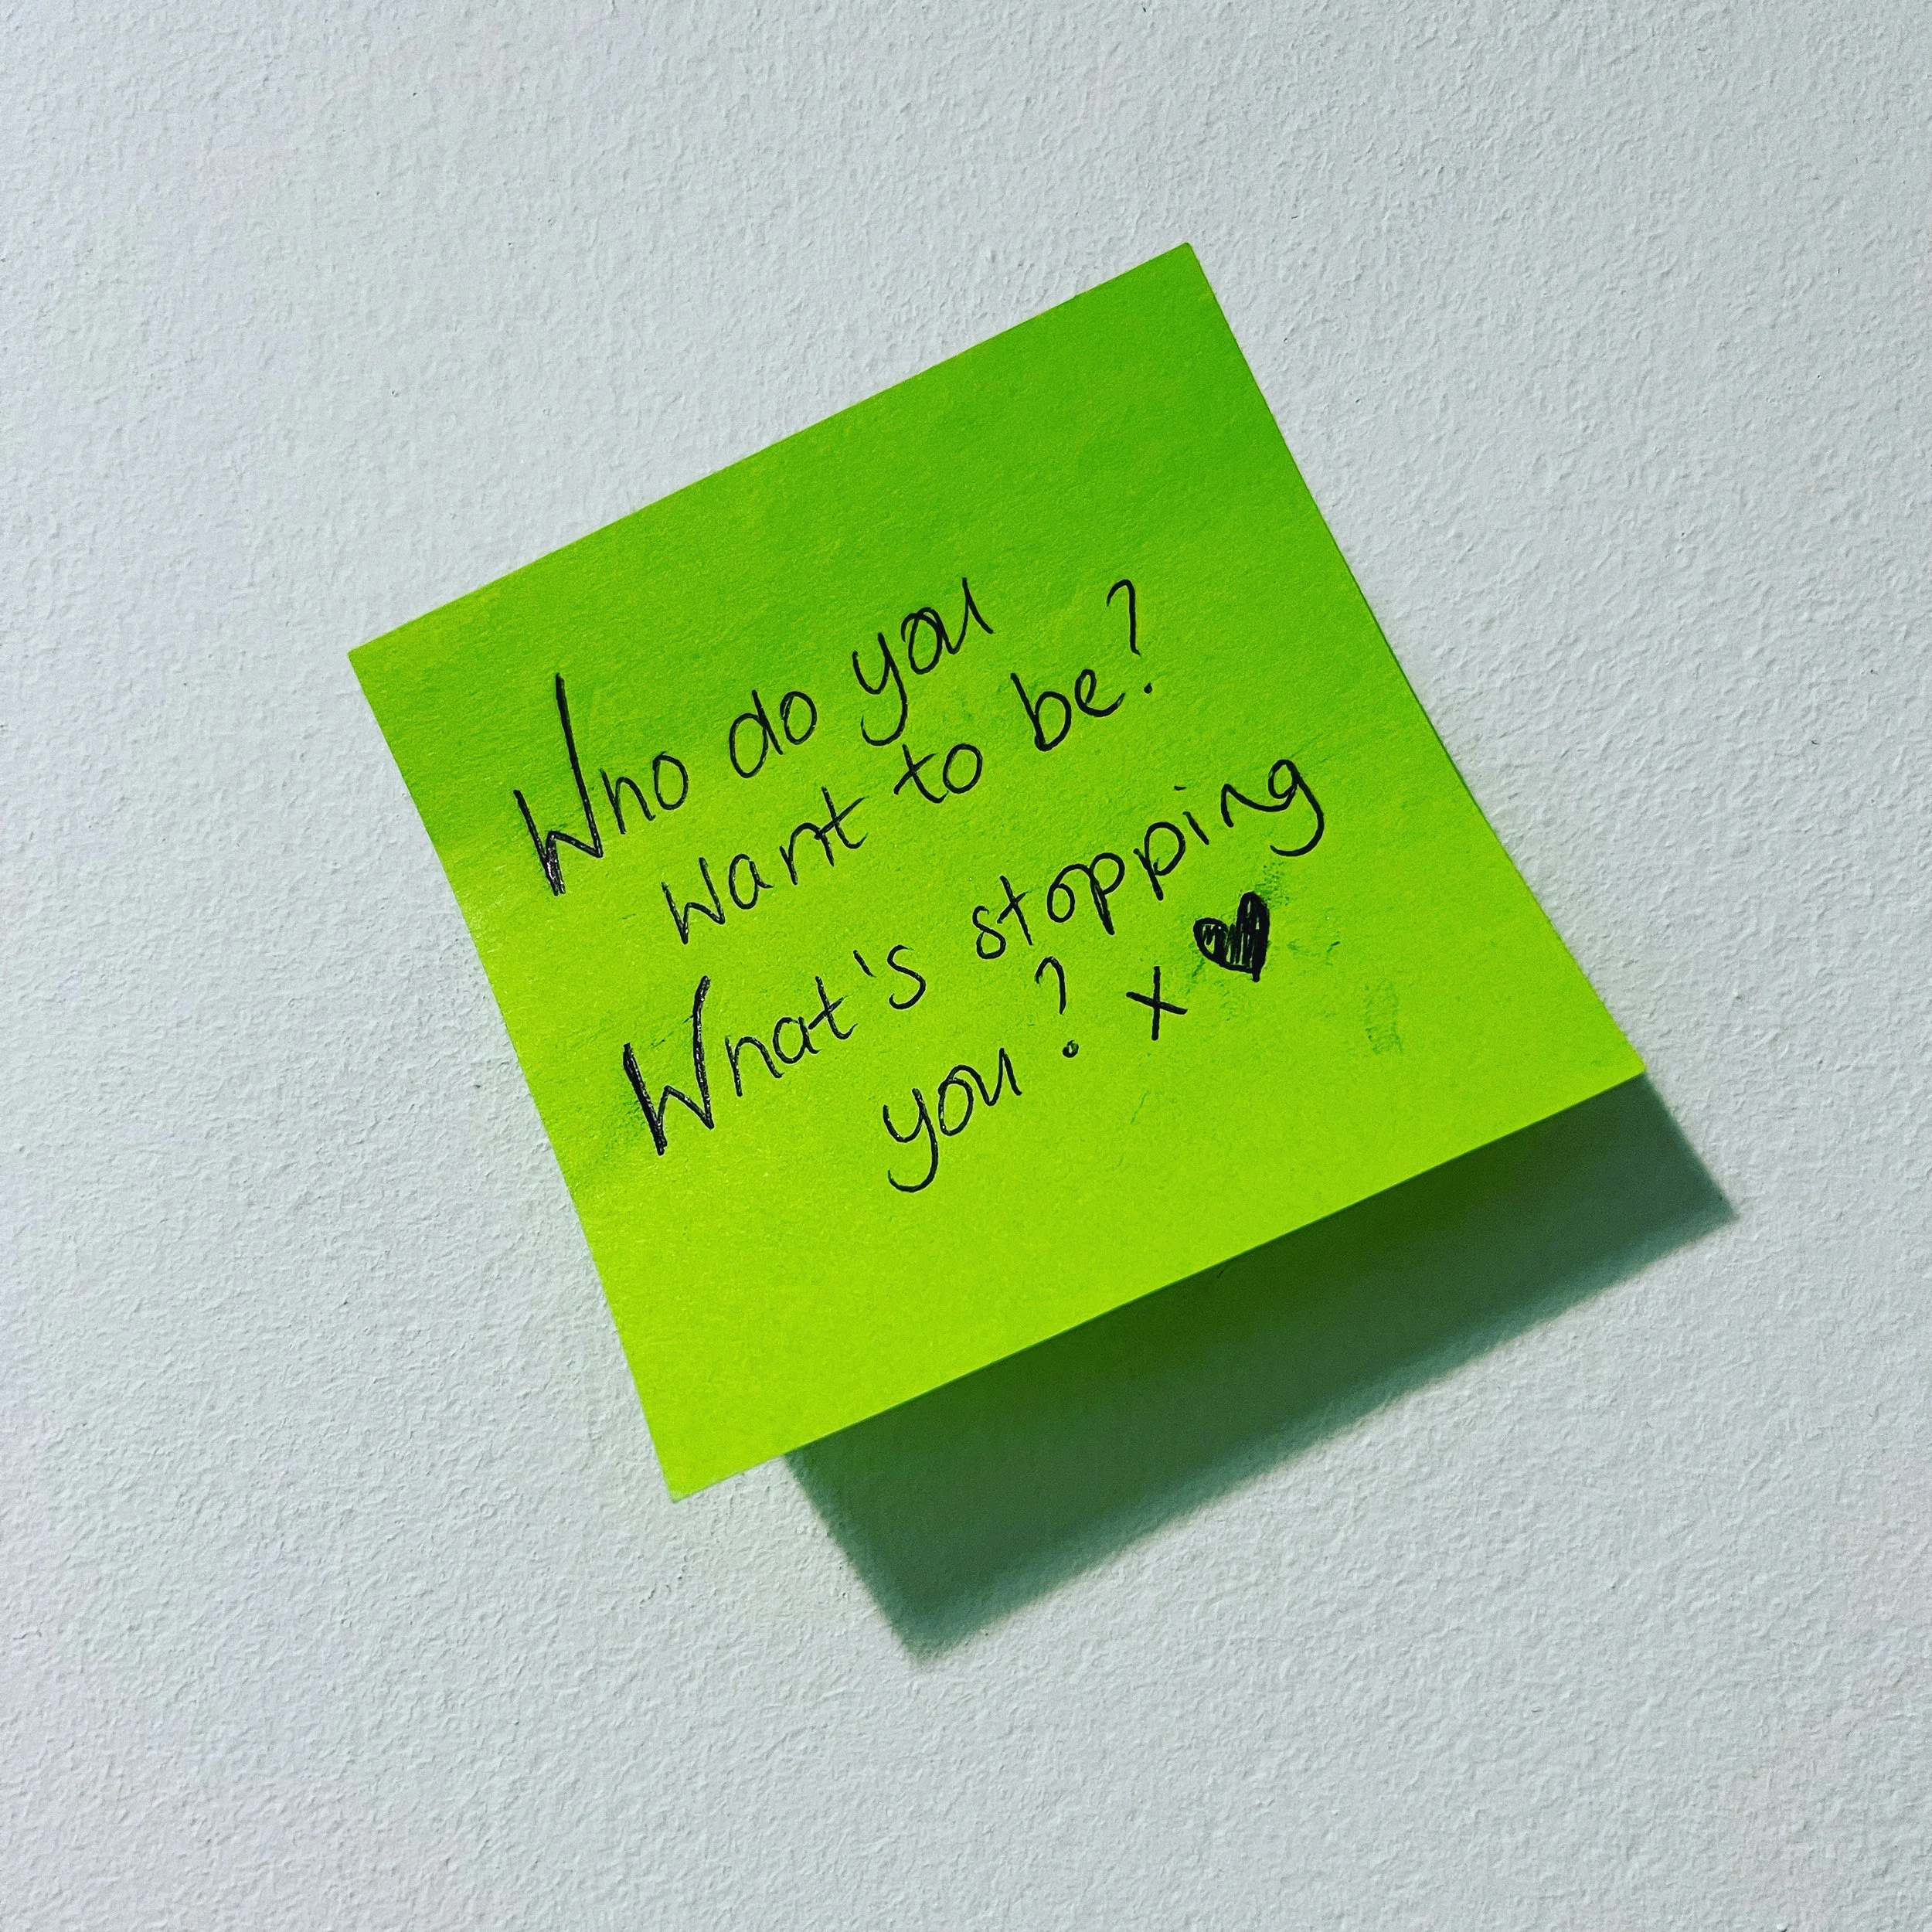 Who do you
want to be?
What's stopping
you? x ♥